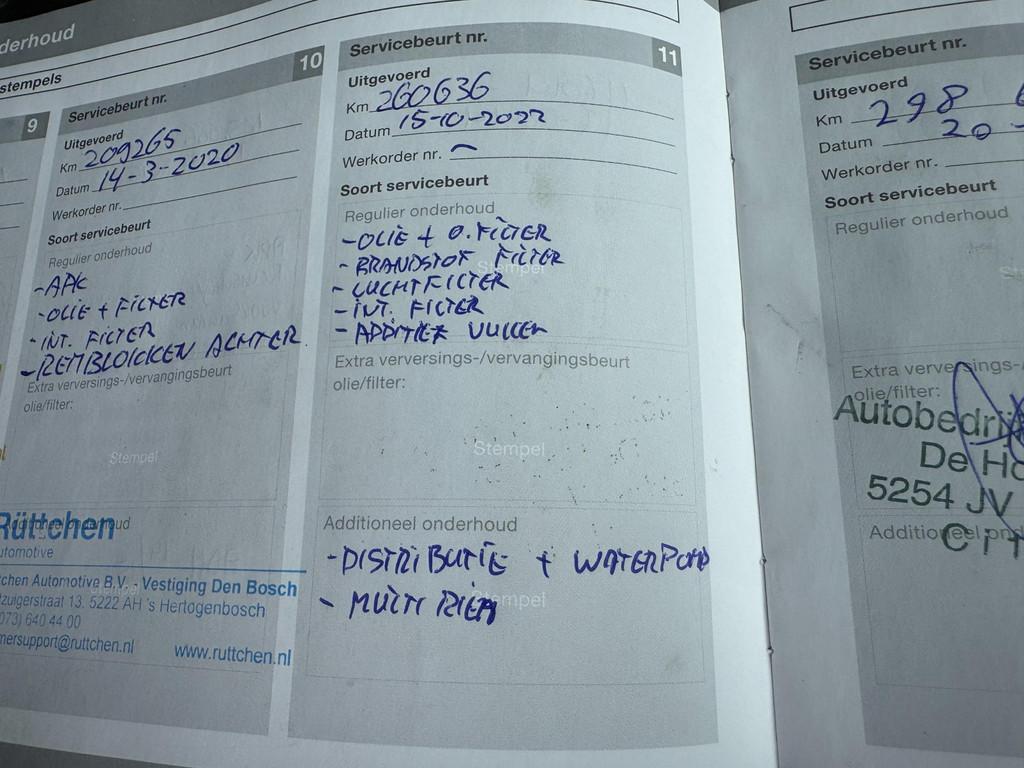 derhoud
stempels
9
Servicebeurt nr. 10
Uitgevoerd
Km 209265
Datum 14-3-2020
Werkorder nr.
Soort servicebeurt
Regulier onderhoud
- APK
- OLIE + FILTER
- INT. FILTER
- REMBLOKKEN ACHTER
Extra verversings-/vervangingsbeurt
olie/filter:
Stempel
Additioneel onderhoud
Rüttchen
utomotive
chen Automotive B.V. - Vestiging Den Bosch
tzuigerstraat 13. 5222 AH 's Hertogenbosch
073) 640 44 00
mersupport@ruttchen.nl www.ruttchen.nl
Servicebeurt nr. 11
Uitgevoerd
Km 260636
Datum 15-10-2022
Werkorder nr.
Soort servicebeurt
Regulier onderhoud
- OLIE + O.FILTER
- BRANDSTOF FILTER
Stempel
- LUCHTFILTER
- INT. FILTER
- ADDITIEF VULLEN
Extra verversings-/vervangingsbeurt
olie/filter:
Stempel
Additioneel onderhoud
- DISTRIBUTIE + WATERPOMP
- MULTI RIEM
Stempel
Servicebeurt nr.
Uitgevoerd
Km 298
Datum 20-
Werkorder nr.
Soort servicebeurt
Regulier onderhoud
Extra verversings-/
olie/filter:
Autobedrij
De Ho
5254 JV
Additioneel ond